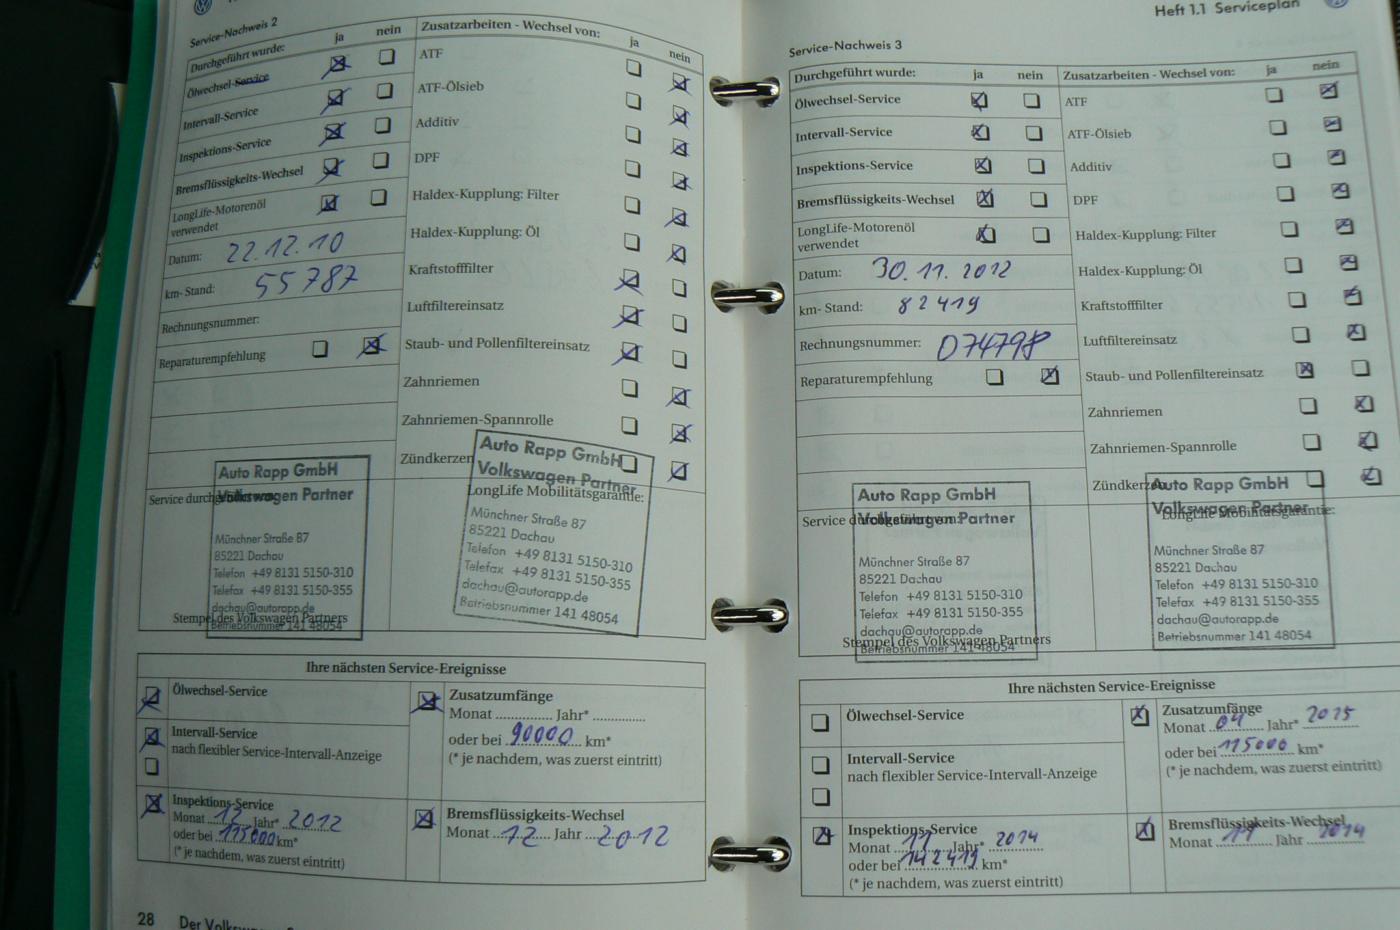 Service-Nachweis 2
Durchgeführt wurde: ja nein
Ölwechsel-Service
Intervall-Service
Inspektions-Service
Bremsflüssigkeits-Wechsel
LongLife-Motorenöl
verwendet
Datum: 22.12.10
km- Stand: 55787
Rechnungsnummer:
Reparaturempfehlung
Zusatzarbeiten - Wechsel von: ja nein
ATF
ATF-Ölsieb
Additiv
DPF
Haldex-Kupplung: Filter
Haldex-Kupplung: Öl
Kraftstofffilter
Luftfiltereinsatz
Staub- und Pollenfiltereinsatz
Zahnriemen
Zahnriemen-Spannrolle
Zündkerzen
Auto Rapp GmbH
Volkswagen Partner
Münchner Straße 87
85221 Dachau
Telefon +49 8131 5150-310
Telefax +49 8131 5150-355
dachau@autorapp.de
Betriebsnummer 141 48054
Stempel des Volkswagen Partners
Auto Rapp GmbH
Volkswagen Partner
LongLife Mobilitätsgarantie:
Münchner Straße 87
85221 Dachau
Telefon +49 8131 5150-310
Telefax +49 8131 5150-355
dachau@autorapp.de
Betriebsnummer 141 48054
Ihre nächsten Service-Ereignisse
Ölwechsel-Service
Intervall-Service
nach flexibler Service-Intervall-Anzeige
Inspektions-Service
Monat 12 Jahr* 2012
oder bei 115000 km*
(* je nachdem, was zuerst eintritt)
Zusatzumfänge
Monat ............ Jahr* ............
oder bei 90000 km*
(* je nachdem, was zuerst eintritt)
Bremsflüssigkeits-Wechsel
Monat 12 Jahr 2012
28
Heft 1.1 Serviceplan
Service-Nachweis 3
Durchgeführt wurde: ja nein
Ölwechsel-Service
Intervall-Service
Inspektions-Service
Bremsflüssigkeits-Wechsel
LongLife-Motorenöl
verwendet
Datum: 30.11.2012
km- Stand: 82419
Rechnungsnummer: 074798
Reparaturempfehlung
Zusatzarbeiten - Wechsel von: ja nein
ATF
ATF-Ölsieb
Additiv
DPF
Haldex-Kupplung: Filter
Haldex-Kupplung: Öl
Kraftstofffilter
Luftfiltereinsatz
Staub- und Pollenfiltereinsatz
Zahnriemen
Zahnriemen-Spannrolle
Zündkerzen
Auto Rapp GmbH
Volkswagen Partner
Münchner Straße 87
85221 Dachau
Telefon +49 8131 5150-310
Telefax +49 8131 5150-355
dachau@autorapp.de
Betriebsnummer 141 48054
Stempel des Volkswagen Partners
Auto Rapp GmbH
Volkswagen Partner
LongLife Mobilitätsgarantie:
Münchner Straße 87
85221 Dachau
Telefon +49 8131 5150-310
Telefax +49 8131 5150-355
dachau@autorapp.de
Betriebsnummer 141 48054
Ihre nächsten Service-Ereignisse
Ölwechsel-Service
Intervall-Service
nach flexibler Service-Intervall-Anzeige
Inspektions-Service
Monat 11 Jahr* 2014
oder bei 142419 km*
(* je nachdem, was zuerst eintritt)
Zusatzumfänge
Monat 04 Jahr* 2015
oder bei 115000 km*
(* je nachdem, was zuerst eintritt)
Bremsflüssigkeits-Wechsel
Monat 11 Jahr 2014